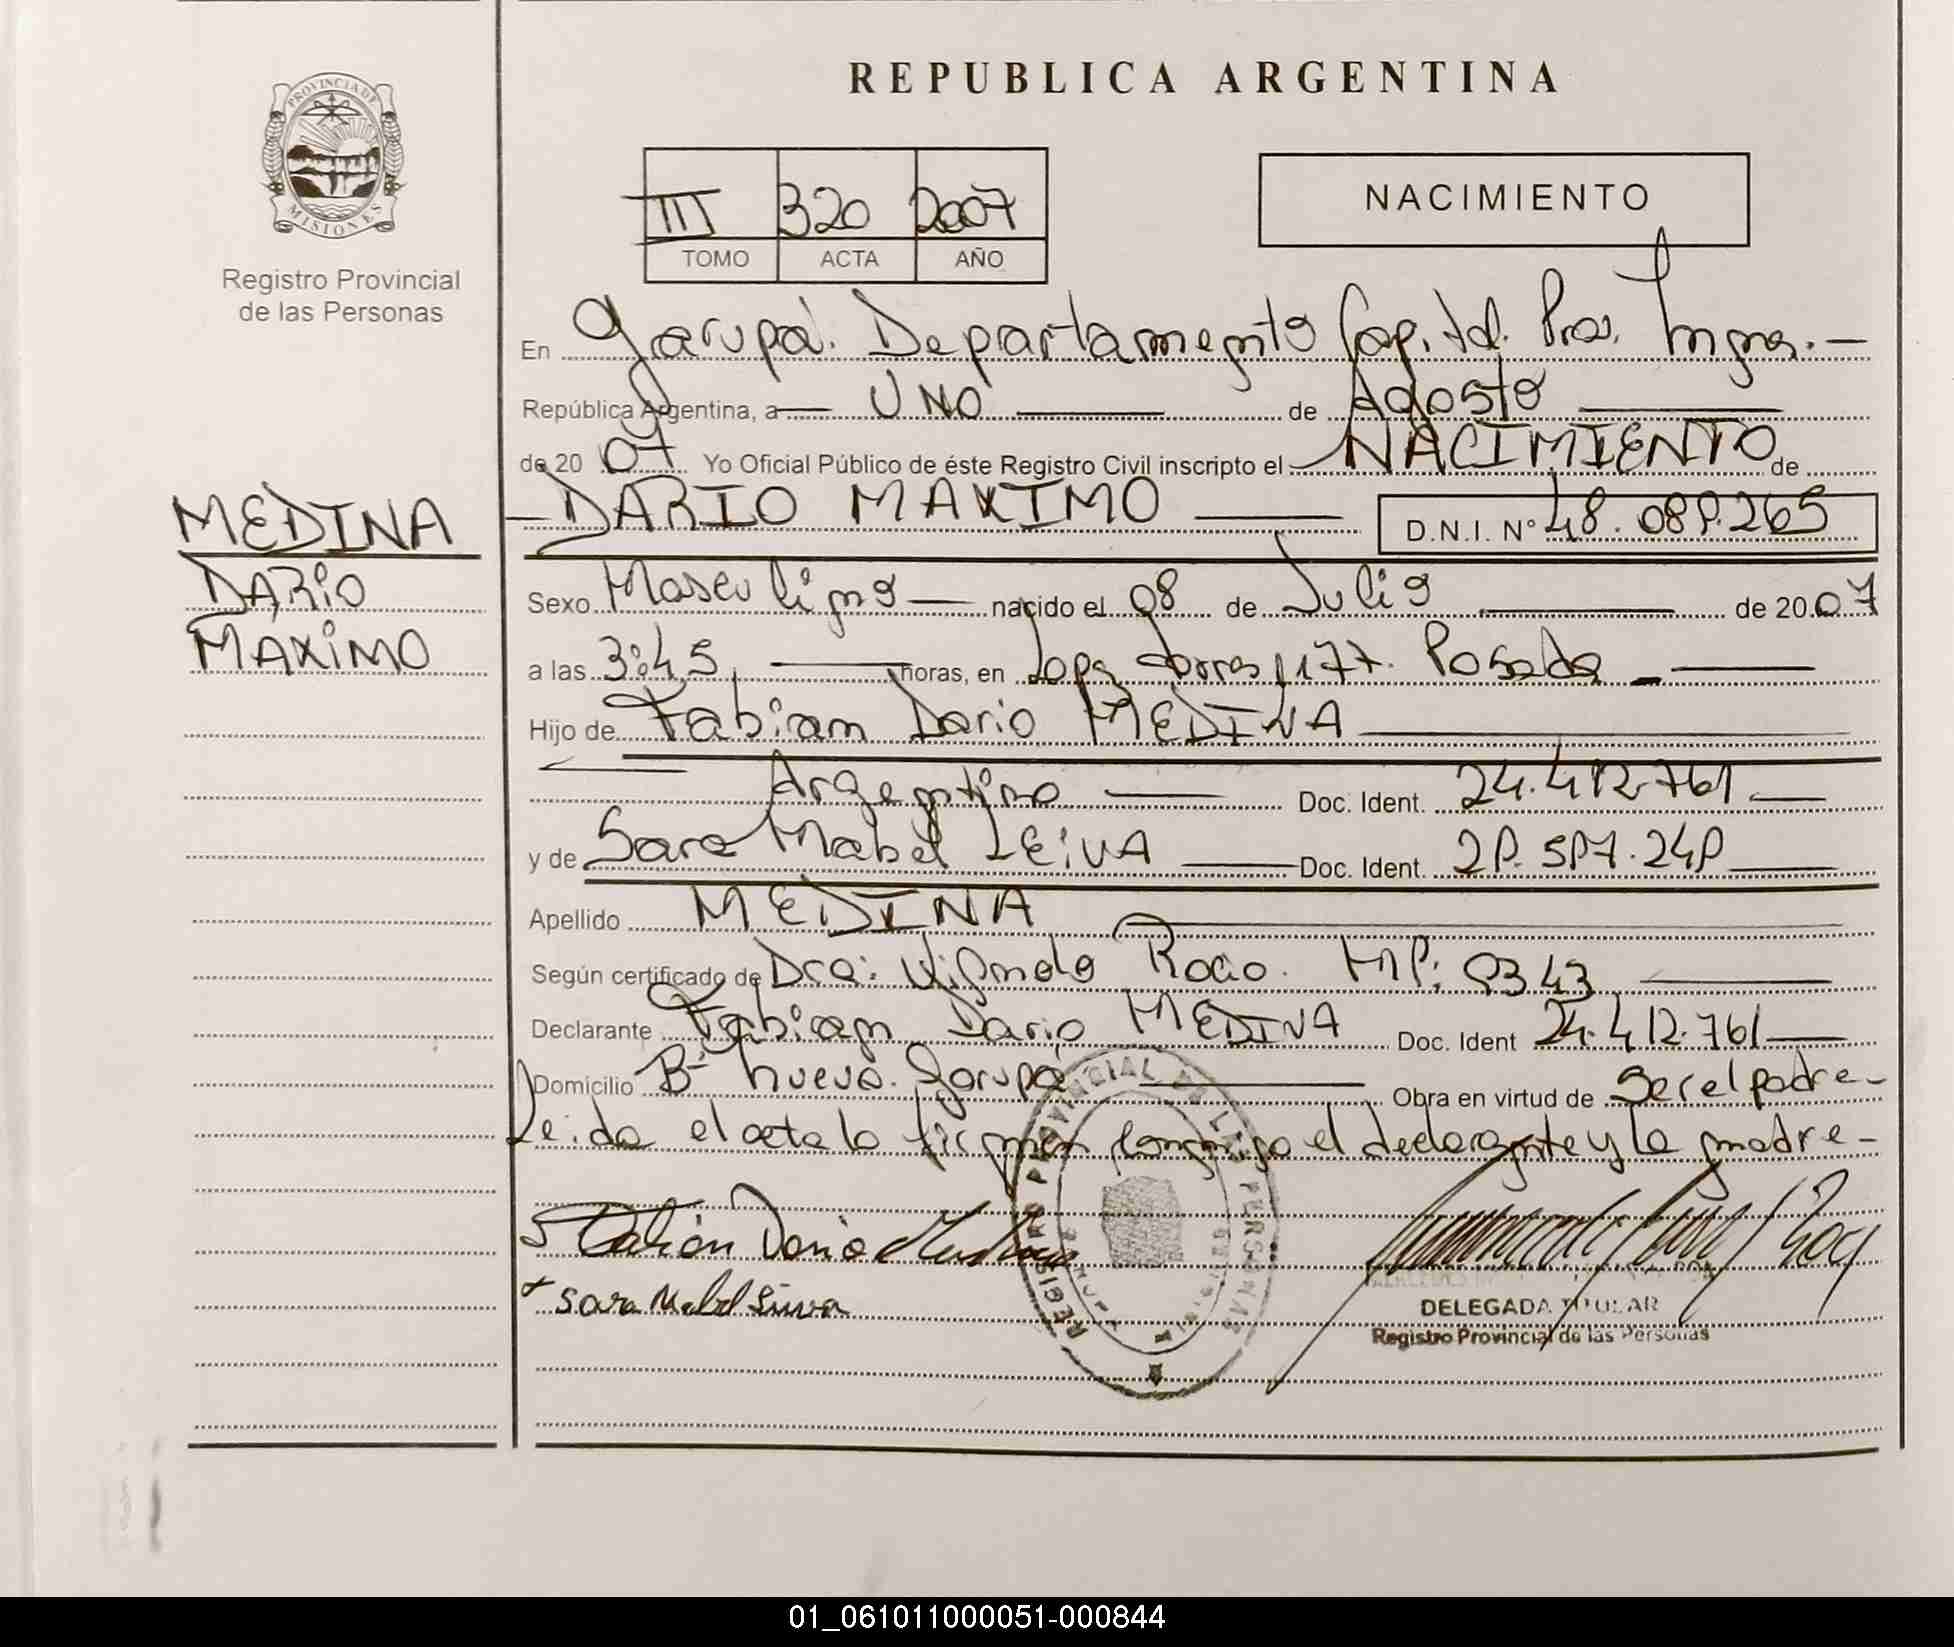 PROVINCIA DE
MISIONES
Registro Provincial
de las Personas
REPUBLICA ARGENTINA
III 320 2007
TOMO ACTA AÑO
NACIMIENTO
En Garupá. Departamento Capital. Pros. Mnes.-
República Argentina, a UNO de Agosto
de 20 07 Yo Oficial Público de éste Registro Civil inscripto el NACIMIENTO de
DARIO MAXIMO D.N.I. N° 48.089.265
MEDINA
DARIO
MAXIMO
Sexo Masculino nacido el 08 de Julio de 20 07
a las 3:45 horas, en Lopez Torres 1177. Posadas
Hijo de Fabian Dario MEDINA
Argentino Doc. Ident. 24.412.761
y de Sara Mabel LEIVA Doc. Ident. 29.597.249
Apellido MEDINA
Según certificado de Dra: Rocio. MP: 0343
Declarante Fabian Dario MEDINA Doc. Ident 24.412.761
Domicilio Bº nuevo. Garupá Obra en virtud de Ser el padre-
Leida el acta la firman conmigo el declarante y la madre-
Fabián Dario Medina
Sara Mabel Leiva
REGISTRO PROVINCIAL DE LAS PERSONAS
DELEGADA TITULAR
Registro Provincial de las Personas
01_061011000051-000844